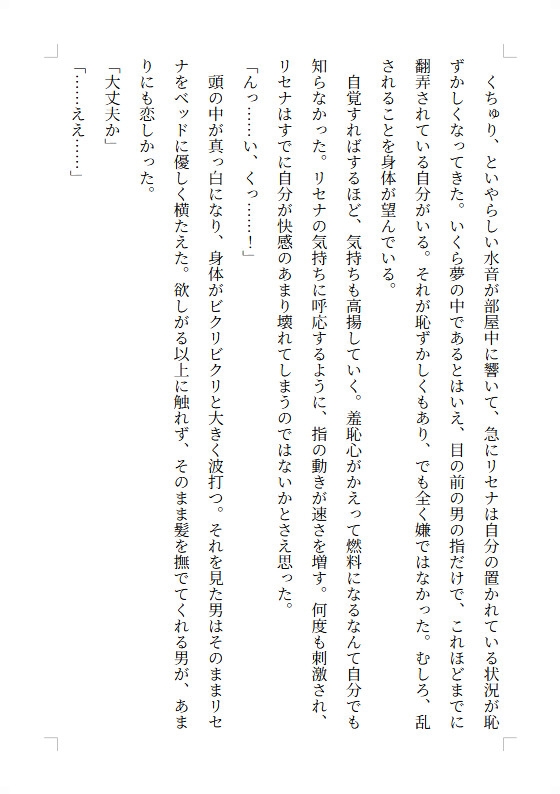 くちゅり、といやらしい水音が部屋中に響いて、急にリセナは自分の置かれている状況が恥
ずかしくなってきた。いくら夢の中であるとはいえ、目の前の男の指だけで、これほどまでに
翻弄されている自分がいる。それが恥ずかしくもあり、でも全く嫌ではなかった。むしろ、乱
されることを身体が望んでいる。
自覚すればするほど、気持ちも高揚していく。羞恥心がかえって燃料になるなんて自分でも
知らなかった。リセナの気持ちに呼応するように、指の動きが速さを増す。何度も刺激され、
リセナはすでに自分が快感のあまり壊れてしまうのではないかとさえ思った。
「んっ……い、くっ……！」
頭の中が真っ白になり、身体がビクリビクリと大きく波打つ。それを見た男はそのままリセ
ナをベッドに優しく横たえた。欲しがる以上に触れず、そのまま髪を撫でてくれる男が、あま
りにも恋しかった。
「大丈夫か」
「……ええ……」